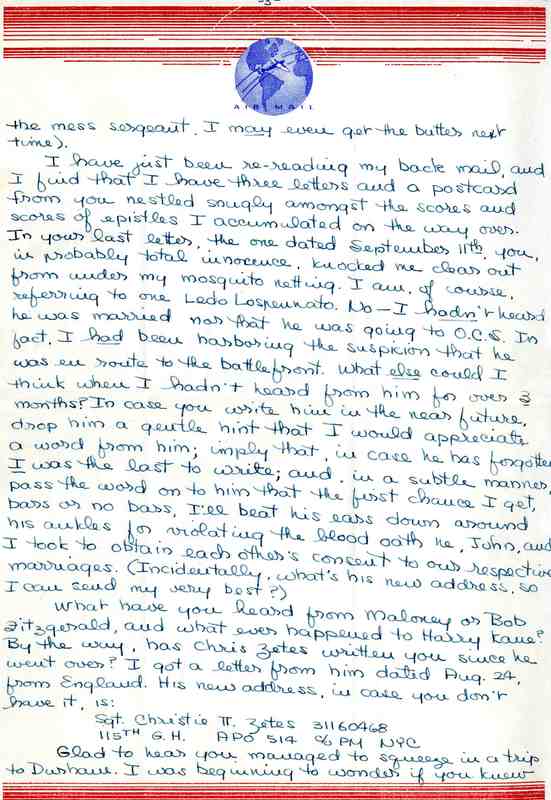 -3-
AIR MAIL
the mess sergeant, I may even get the butter next
time).
I have just been re-reading my back mail, and
I find that I have three letters and a postcard
from you nestled snugly amongst the scores and
scores of epistles I accumulated on the way over.
In your last letter, the one dated September 11th, you,
in probably total innocence, knocked me clear out
from under my mosquito netting. I am, of course,
referring to one Ledo Lospennato. No – I hadn't heard
he was married nor that he was going to O.C.S. In
fact, I had been harboring the suspicion that he
was en route to the battlefront. What else could I
think when I hadn't heard from him for over 3
months? In case you write him in the near future,
drop him a gentle hint that I would appreciate
a word from him; imply that, in case he has forgotten
I was the last to write; and, in a subtle manner,
pass the word on to him that the first chance I get,
bars or no bars, I'll beat his ears down around
his ankles for violating the blood oath he, John, and
I took to obtain each other's consent to our respective
marriages. (Incidentally, what's his new address, so
I can send my very best?)
What have you heard from Maloney or Bob
Fitzgerald, and what ever happened to Harry Kane?
By the way, has Chris Zetes written you since he
went over? I got a letter from him dated Aug. 24,
from England. His new address, in case you don't
have it, is:
Sgt. Christie T. Zetes 31160468
115TH G.H. APO 514 c/o PM NYC
Glad to hear you managed to squeeze in a trip
to Durham. I was beginning to wonder if you knew